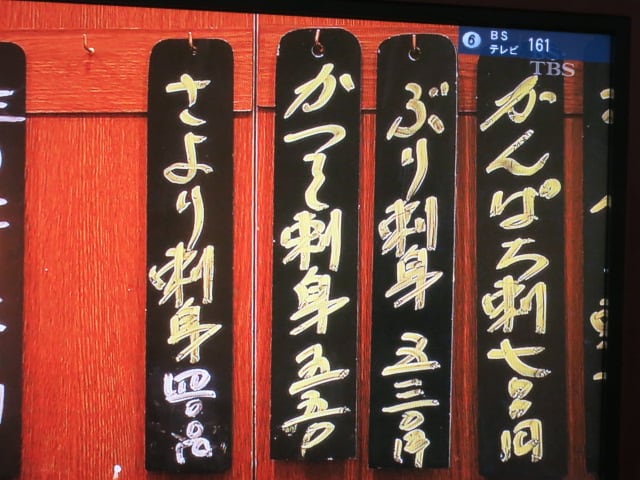 6
BS
テレビ
161
TBS
かんぱち刺 七〇〇円
ぶり刺身 五三〇円
かつを刺身 五五〇
さより刺身